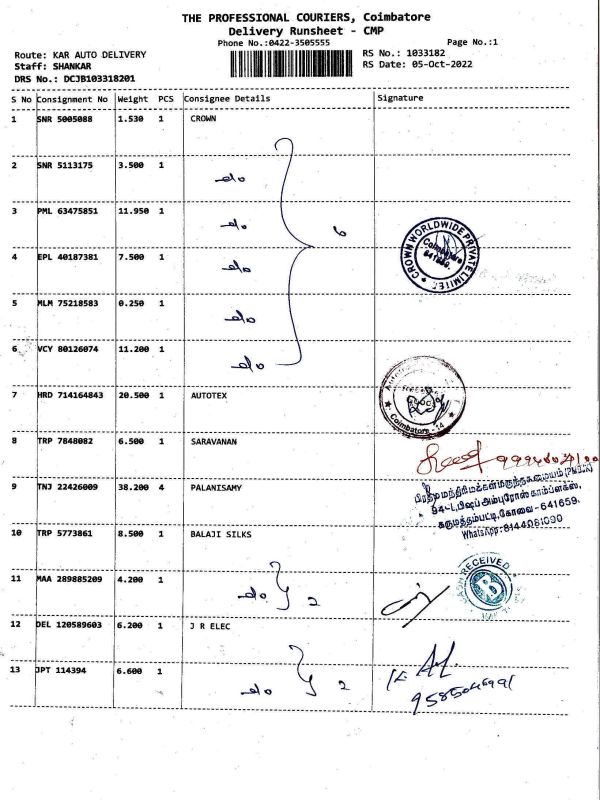 THE PROFESSIONAL COURIERS, Coimbatore
Delivery Runsheet - CMP
Phone No.:0422-3505555
Page No.:1
Route: KAR AUTO DELIVERY
RS No.: 1033182
Staff: SHANKAR
RS Date: 05-Oct-2022
DRS No.: DCJB103318201
S No Consignment No Weight PCS Consignee Details Signature
1 SNR 5005088 1.530 1 CROWN
2 SNR 5113175 3.500 1 do
3 PML 63475851 11.950 1 do
6
CROWN WORLDWIDE PRIVATE LIMITED
Coimbatore
641659.
4 EPL 40187381 7.500 1 do
5 MLM 75218583 0.250 1 do
6 VCY 80126074 11.200 1 do
7 HRD 714164843 20.500 1 AUTOTEX
Coimbatore - 14
8 TRP 7848082 6.500 1 SARAVANAN
9 TNJ 22426009 38.200 4 PALANISAMY
பிரதம மந்திரி மக்கள் மருந்தகமையம் (PMBJK)
94-L, பிஷப் அம்புரோஸ் காம்ப்ளக்ஸ்,
கருமத்தம்பட்டி, கோவை - 641659.
WhatsApp: 8144081090
10 TRP 5773861 8.500 1 BALAJI SILKS
11 MAA 289885209 4.200 1 do 2
RECEIVED
B
12 DEL 120589603 6.200 1 J R ELEC
13 JPT 114394 6.600 1 do 2